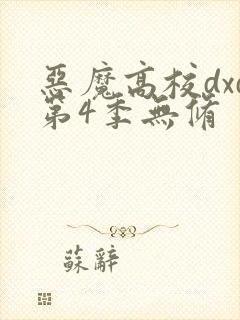 惡魔高校dxd
第4季無脩
蘇辭